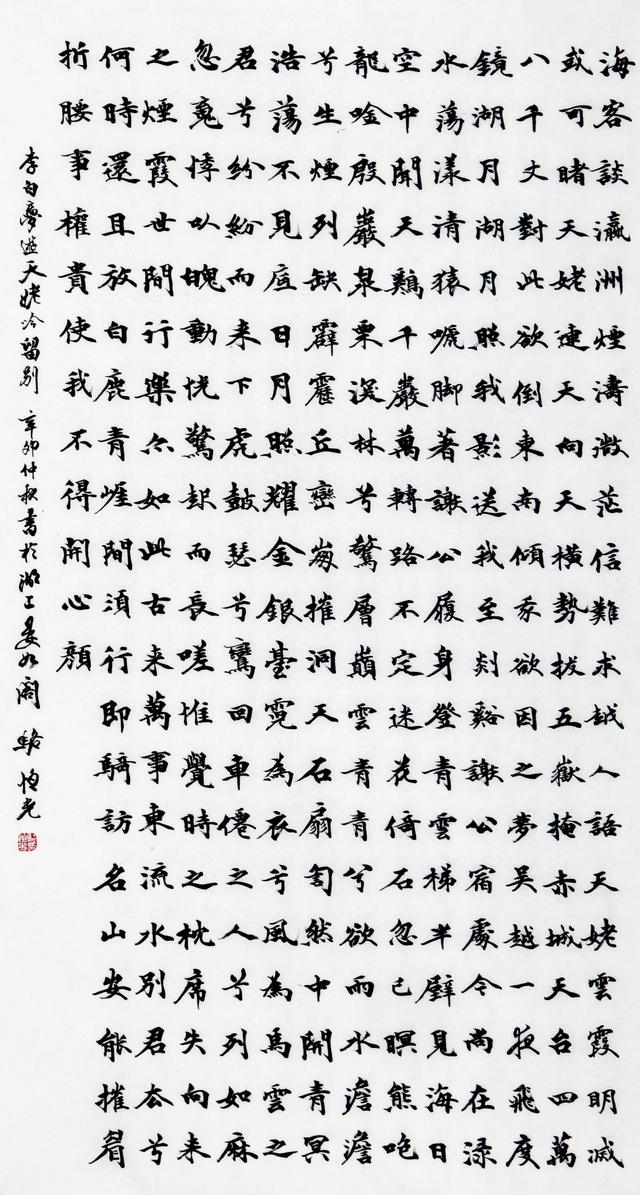 海客談瀛洲煙濤微茫信難求越人語天姥雲霞明滅
或可睹天姥連天向天橫勢拔五嶽掩赤城天台四萬
八千丈對此欲倒東南傾我欲因之夢吳越一夜飛度
鏡湖月湖月照我影送我至剡谿謝公宿處今尚在淥
水蕩漾清猿嗁脚著謝公履身登青雲梯半壁見海日
空中聞天鷄千巖萬轉路不定迷花倚石忽已暝熊咆
龍吟殷巖泉栗深林兮驚層巔雲青青兮欲雨水澹澹
兮生煙列缺霹靂丘巒崩摧洞天石扇訇然中開青冥
浩蕩不見底日月照耀金銀臺霓為衣兮風為馬雲之
君兮紛紛而来下虎鼓瑟兮鸞回車僊之人兮列如麻
忽魂悸以魄動怳驚起而長嗟惟覺時之枕席失向来
之煙霞世間行樂亦如此古来萬事東流水別君去兮
何時還且放白鹿青崖間須行即騎訪名山安能摧眉
折腰事權貴使我不得開心顔
李白夢遊天姥吟留別 辛卯仲秋書於湖上晏如閣 駱恒光